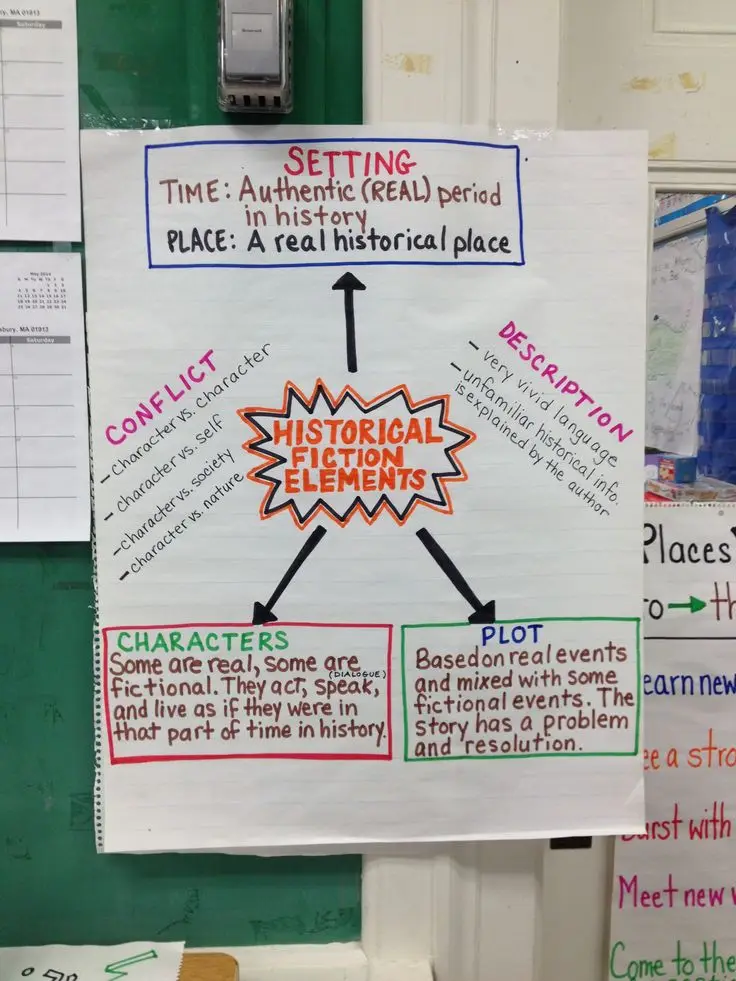 bury, MA 01913
Saturday
May 2014
sbury, MA 01913
Saturday
SETTING
TIME: Authentic (REAL) period
in history
PLACE: A real historical place
CONFLICT
- Character vs. character
- Character vs. self
- Character vs. society
- character vs. nature
DESCRIPTION
- very vivid language
- unfamiliar historical info.
is explained by the author
HISTORICAL
FICTION
ELEMENTS
CHARACTERS
Some are real, some are
(DIALOGUE)
fictional. They act, speak,
and live as if they were in
that part of time in history.
PLOT
Based on real events
and mixed with some
fictional events. The
story has a problem
and resolution.
Places
to → th
earn new
ee a stro
urst with
Meet new
Come to the